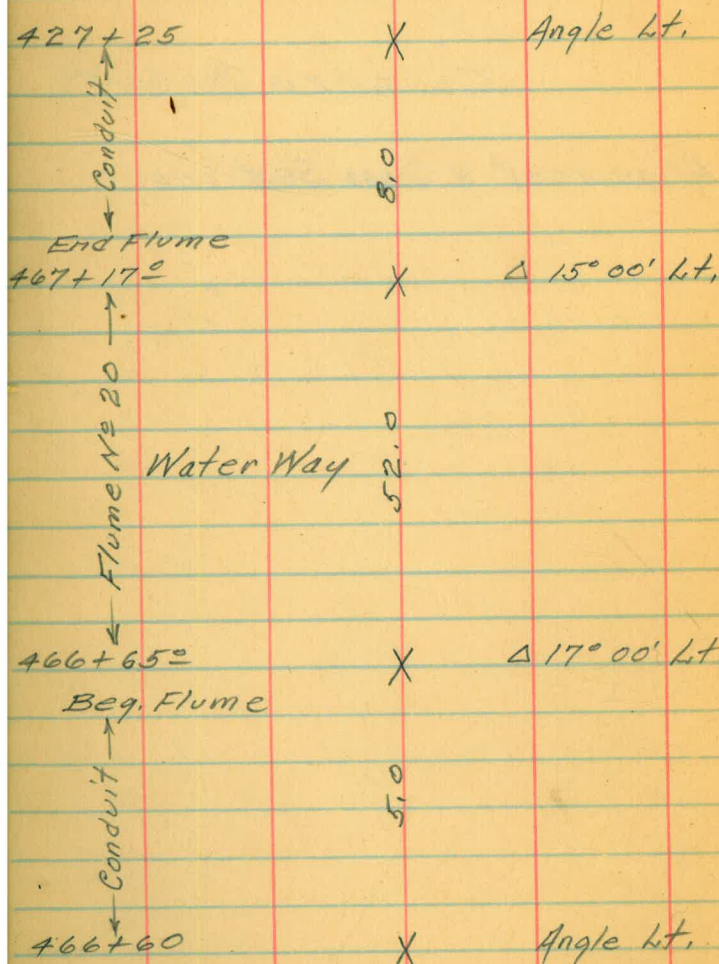 427+25 X Angle Lt.
← Conduit →
8.0
End Flume
467+17⁰ X Δ 15° 00' Lt.
← Flume Nº 20 →
Water Way
52.0
466+65⁰ X Δ 17° 00' Lt
Beg. Flume
← Conduit →
5.0
466+60 X Angle Lt.